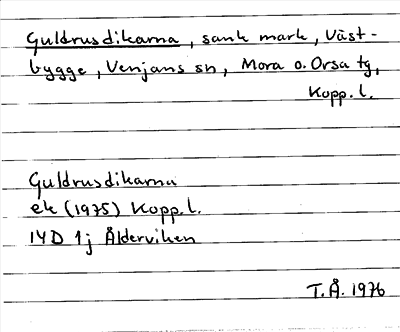 Guldrusdikarna, sank mark, Väst-
bygge, Venjans sn, Mora o. Orsa tg,
Kopp.l.
Guldrusdikarna
ek (1975) Kopp.l.
14D 1j Ålderviken
T.Å. 1976